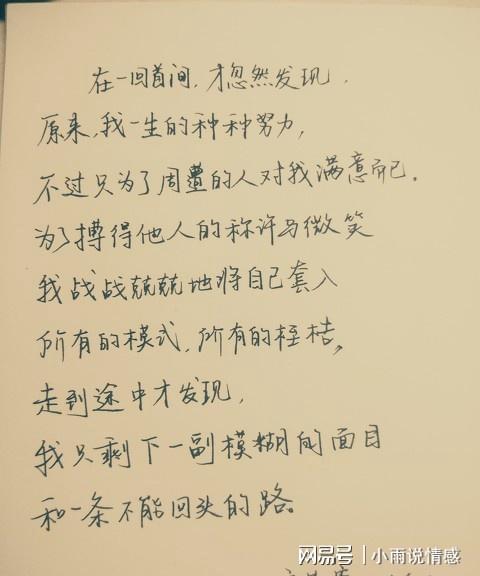 在一回首间，才忽然发现，
原来，我一生的种种努力，
不过只为了周遭的人对我满意而已。
为了搏得他人的称许与微笑
我战战兢兢地将自己套入
所有的模式，所有的桎梏。
走到途中才发现，
我只剩下一副模糊的面目
和一条不能回头的路。
网易号 | 小雨说情感